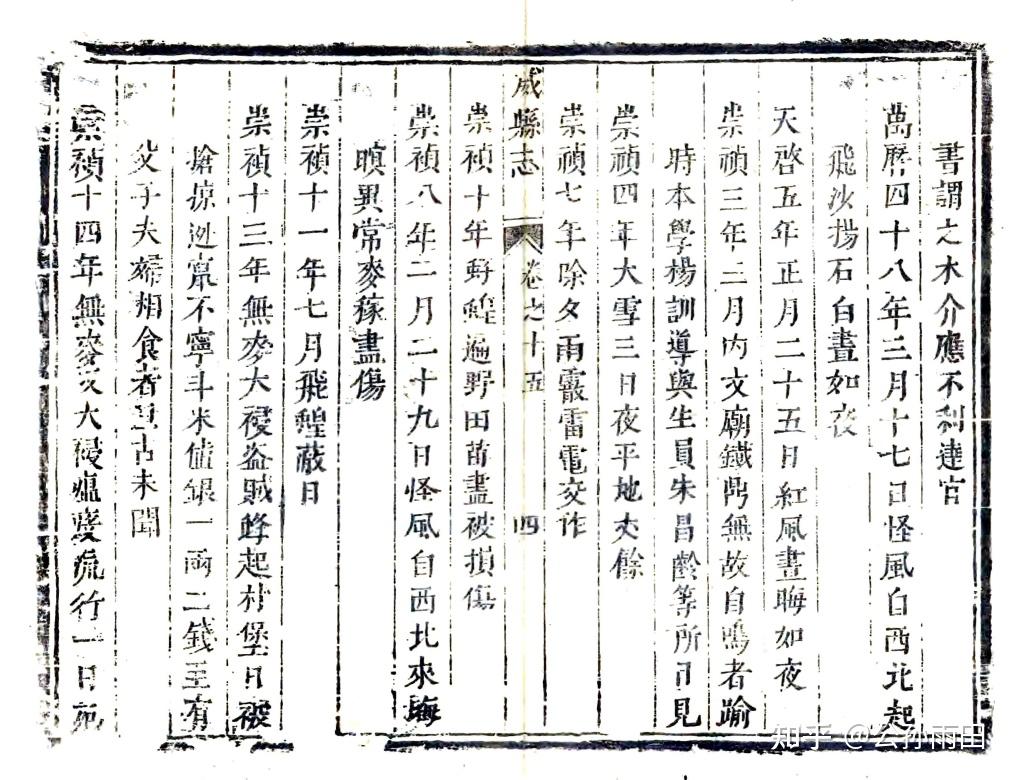 書謂之木介應不利達官
萬曆四十八年三月十七日怪風自西北起
飛沙揚石白晝如夜
天啓五年正月二十五日紅風晝晦如夜
崇禎三年二月內文廟鐵鼎無故自鳴者踰
時本學楊訓導與生員朱昌齡等所目見
崇禎四年大雪三日夜平地丈餘
崇禎七年除夕雨霰雷電交作
威縣志 卷之十五 四
崇禎十年蝗遍野田苗盡被損傷
崇禎八年二月二十九日怪風自西北來
暝異常麥稼盡傷
崇禎十一年七月飛蝗蔽日
崇禎十三年無麥大祲盜賊蜂起村堡日被
搶掠逃竄不寧斗米值銀一兩二錢至有
父子夫婦相食者亘古未聞
崇禎十四年無麥大祲瘟疫流行一日死
知乎 @公孙雨田